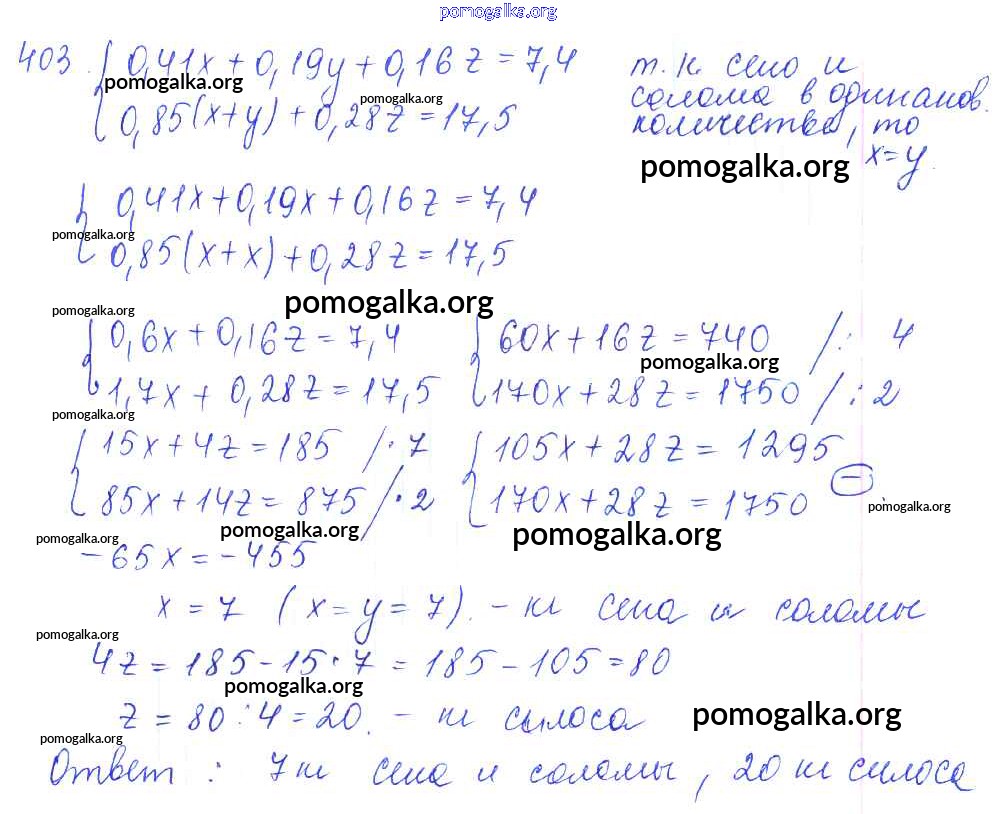 pomogalka.org
403 { 0,41x + 0,19y + 0,16z = 7,4 т.к сено и
pomogalka.org pomogalka.org солома в одинаков.
0,85(x+y) + 0,28z = 17,5 количестве, то
pomogalka.org x=y.
{ 0,41x + 0,19x + 0,16z = 7,4
pomogalka.org
0,85(x+x) + 0,28z = 17,5
pomogalka.org
pomogalka.org
{ 0,6x + 0,16z = 7,4 { 60x + 16z = 740 /: 4
pomogalka.org
1,7x + 0,28z = 17,5 170x + 28z = 1750 /: 2
pomogalka.org
{ 15x + 4z = 185 /· 7 { 105x + 28z = 1295
85x + 14z = 875 /· 2 170x + 28z = 1750 (−)
pomogalka.org pomogalka.org pomogalka.org pomogalka.org
-65x = -455
x = 7 (x=y=7). - кг сена и соломы
pomogalka.org
4z = 185 - 15·7 = 185 - 105 = 80
pomogalka.org
z = 80:4 = 20. - кг силоса pomogalka.org
pomogalka.org
Ответ: 7 кг сена и соломы, 20 кг силоса